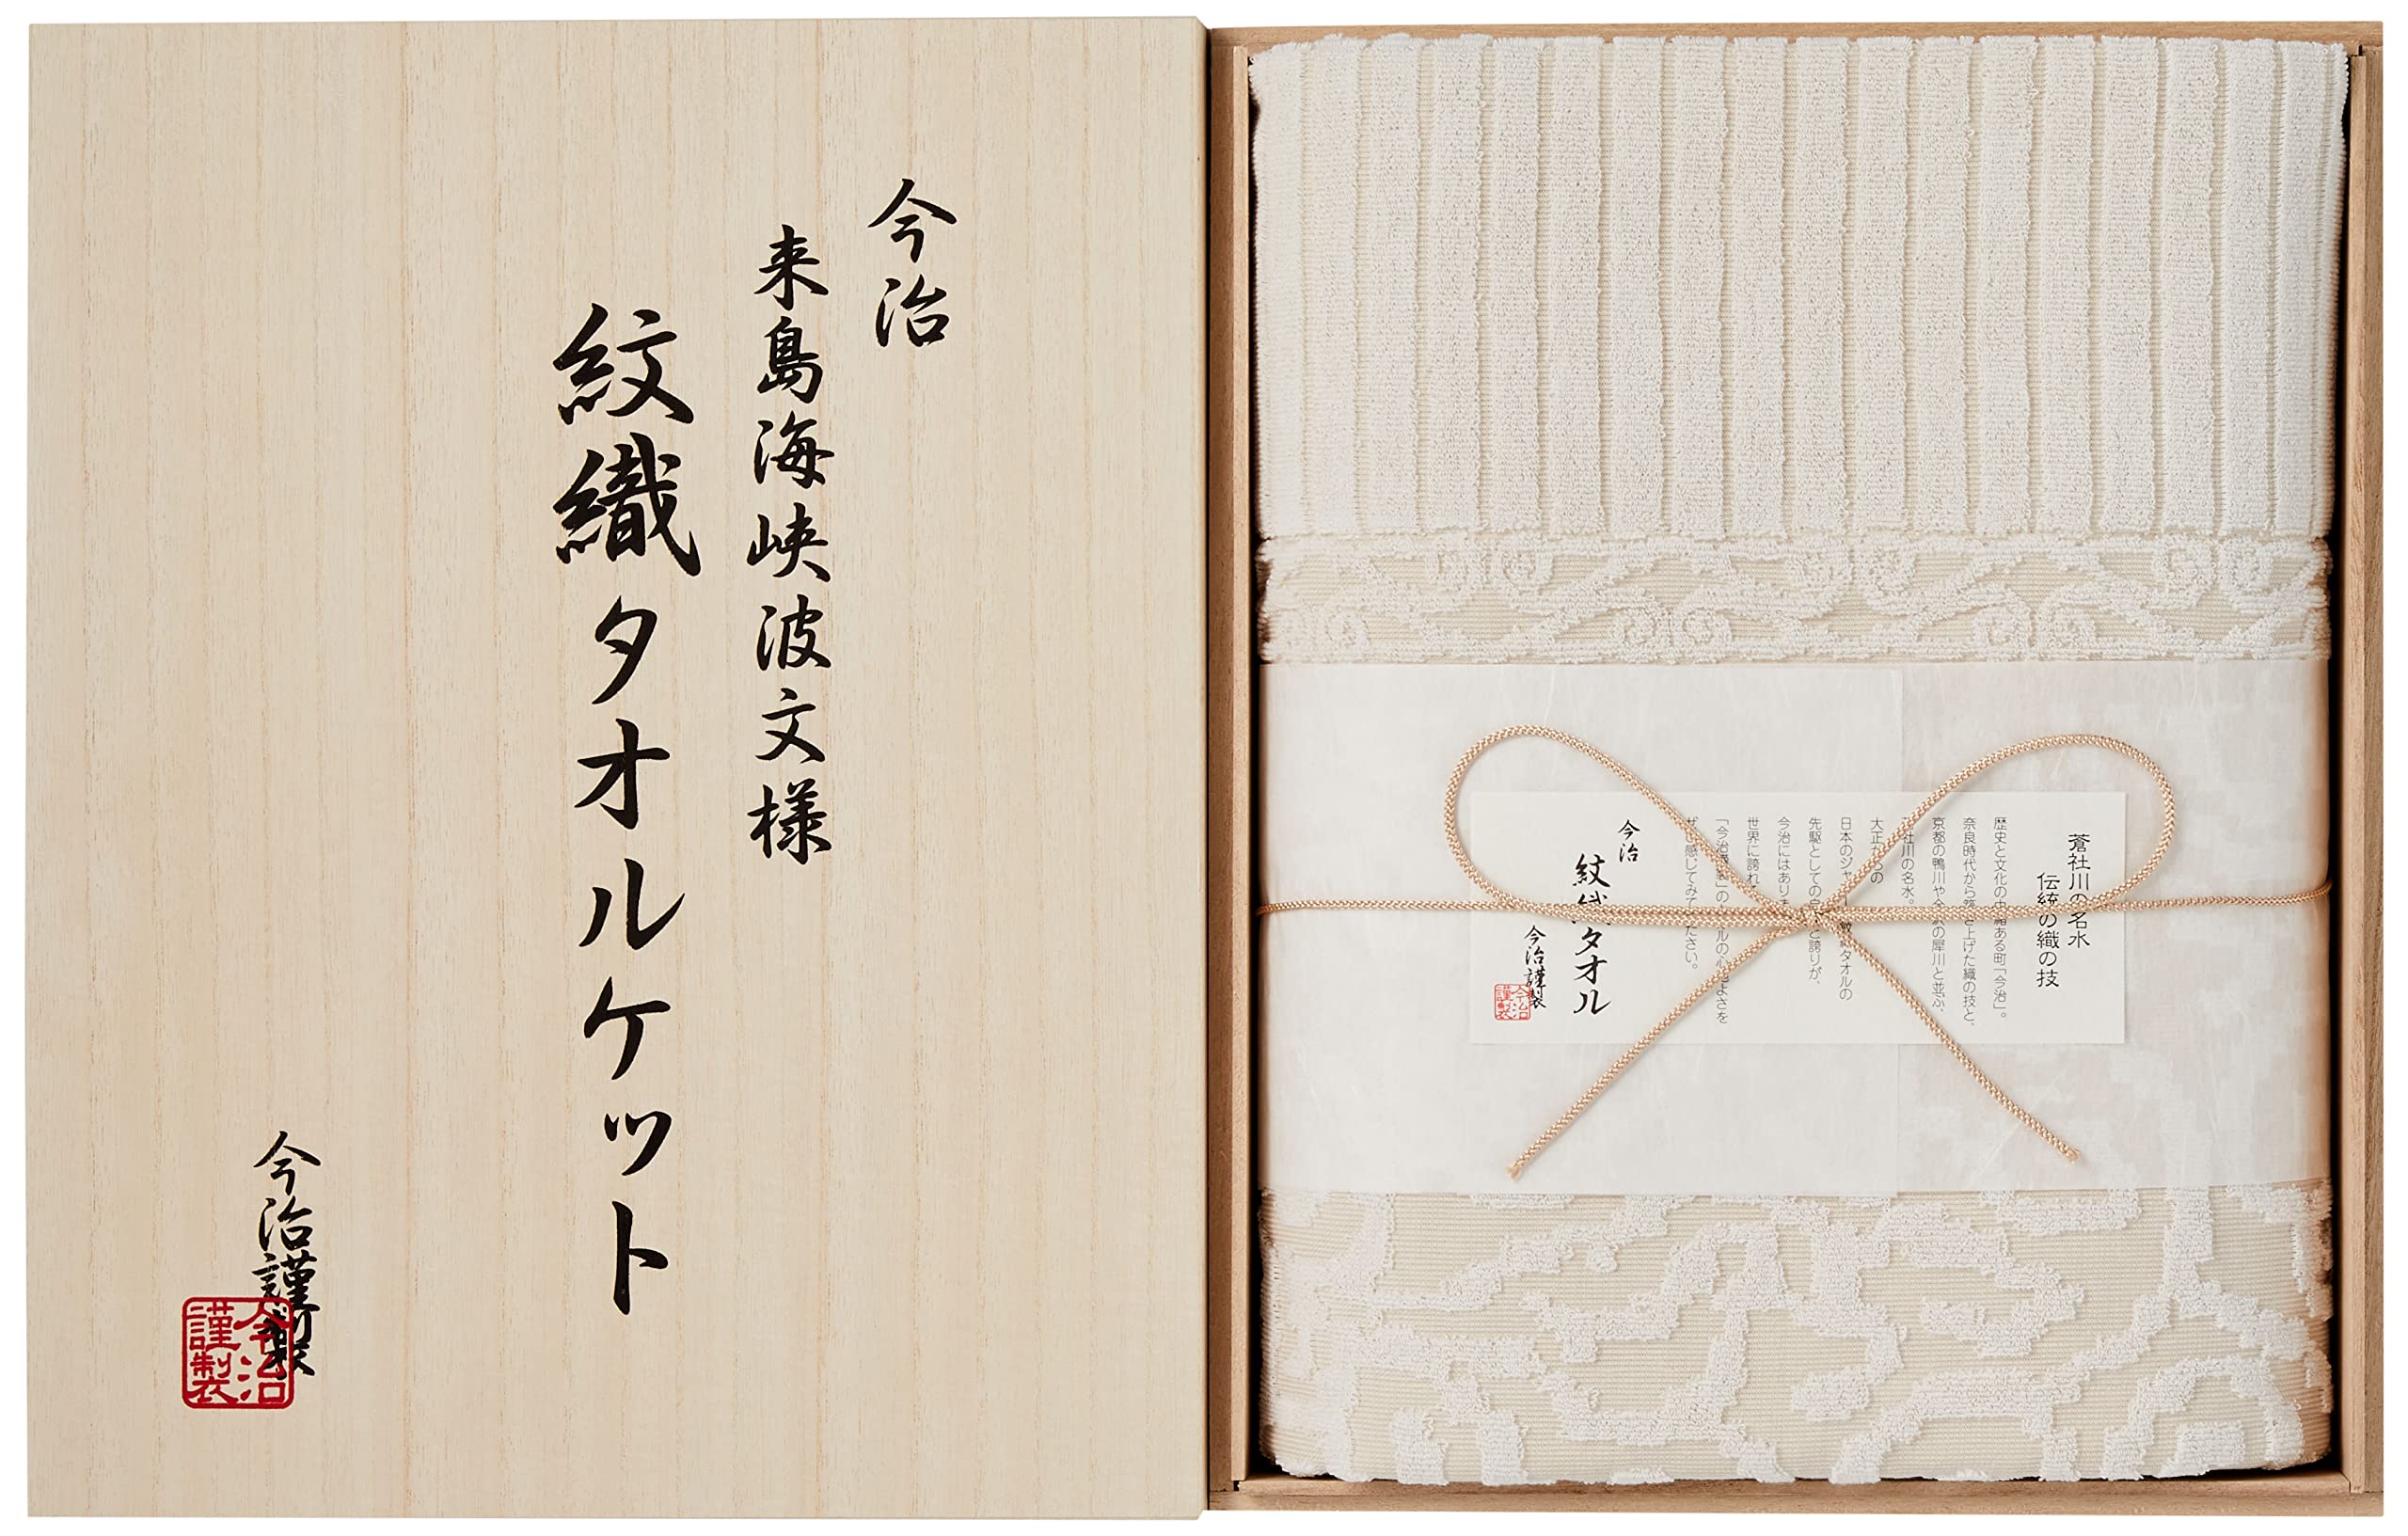 今治
来島海峡波文様
紋織タオルケット
今治謹製
今治
謹製
蒼社川の名水
伝統の織の技
歴史と文化の由緒ある町「今治」。
奈良時代から 上げた織の技と、
京都の鴨川や の犀川と並ぶ、
社川の名水。
大正 の
日本のジャ タオルの
先駆としての 誇りが、
今治にはあり
世界に誇れ
「今治謹製」の ルの心地よさを
ぜひ感じてみて ださい。
今治
紋織タオル
今治謹製
今治
謹製